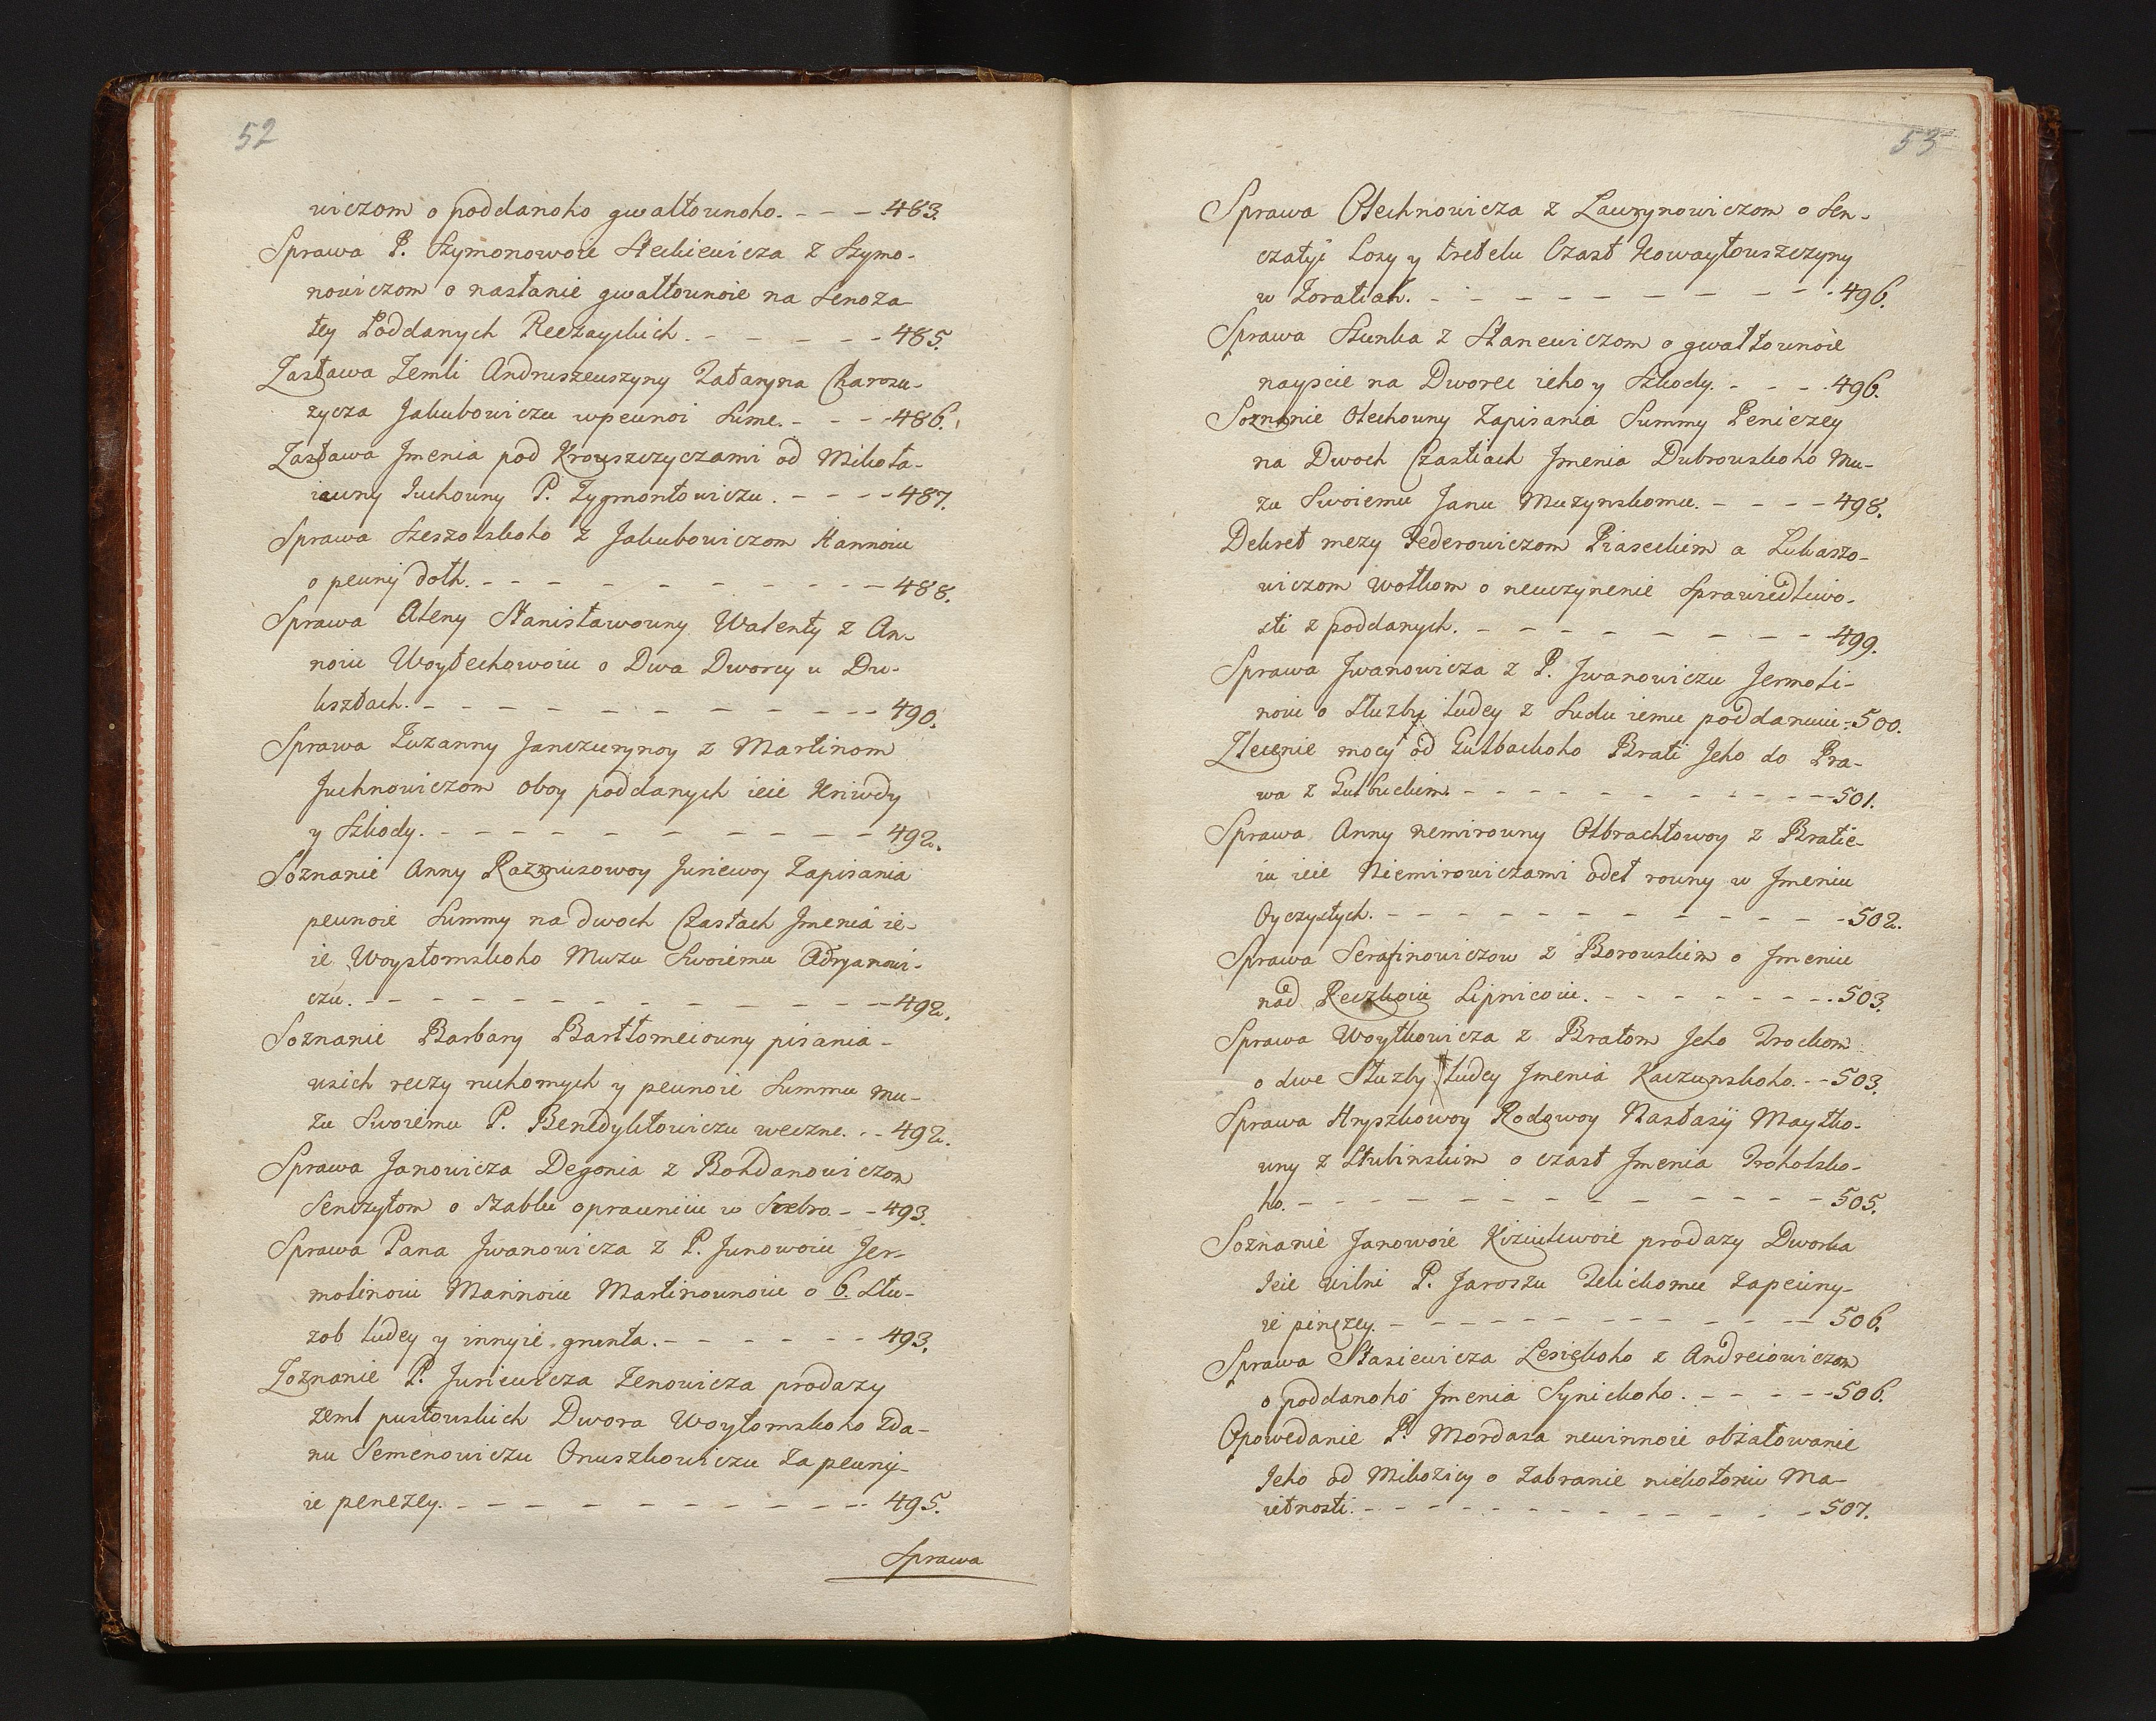 52
wiczom o poddanoho gwałtownoho. - - - 483.
Sprawa P. Szymonowoie Steckiewicza z Szymo-
nowiczom o nasłanie gwałtownoie na Senoża-
tey Poddanych Reczayckich. - - - - - 485.
Zastawa Zemli Andruszewszyny Zataryna Charozu-
życza Jakubowiczu wpewnoi Sume. - - - 486.
Zastawa Jmenia pod Krowszczyczami od Mikoła-
iewny Juchowny P. Zygmontowiczu. - - - - 487.
Sprawa Szeszolskoho z Jakubowiczom Hannoiu
o pewny dolh. - - - - - - - - - - 488.
Sprawa Aleny Stanisławowny Walenty z An-
noiu Woytechowoiu o Dwa Dworcy u Du-
ksztach. - - - - - - - - - - - 490.
Sprawa Zuzanny Janczurynoy z Martinom
Juchnowiczom oboy poddanych ieie Kriwdy
y Szkody. - - - - - - - - - - - 492.
Soznanie Anny Razmusowoy Juriewoy Zapisania
pewnoie Summy na dwoch Czastach Jmenia ie-
ie Woystomskoho Mużu Swoiemu Adryanowi-
czu. - - - - - - - - - - - - - 492.
Soznanie Barbary Bartłomeiowny pisania-
wsich reczy ruchomych y pewnoie Summu mu-
żu Swoiemu P. Benedyktowiczu weczne. - - 492.
Sprawa Janowicza Degonia z Bohdanowiczom
Senczyłom o Szablu oprawniiu w Srebro. - - 493.
Sprawa Pana Jwanowicza z P. Junowoiu Jer-
molinoiu Mannoiu Martinownoiu o 6. Słu-
żob ludey y innyie grunta. - - - - - - 493.
Zoznanie P. Juriewicza Zenowicza prodaży
zeml pustowskich Dwora Woytomskoho Zda-
nu Semenowiczu Onuszkowiczu za pewny-
ie penezey. - - - - - - - - - - 495.
Sprawa
53
Sprawa Olechnowicza z Lawrynowiczom o Sen-
czatyi Losy y tretelu Czast Kowaytowszczyny
w Zoratiah. - - - - - - - - - - 496.
Sprawa Szunka z Stanewiczom o gwałtownoie
nayscie na Dworec ieho y Szkody. - - - 496.
Soznanie Olechowny Zapisania Summy Peniezey
na Dwoch Czastiach Jmenia Dubrowskoho Mu-
żu Swoiemu Janu Mużynskomu. - - - - 498.
Dekret meży Federowiczom Piaseckim a Lukaszo-
wiczom Wołkom o neuczynenie Sprawiedliwo-
sti z poddanych. - - - - - - - - 499.
Sprawa Jwanowicza z P. Jwanowiczu Jermoli-
noiu o Służby ludey z Sudu iemu poddannu. - 500.
Zlecenie mocy od Gulbackoho Brati Jeho do Pra-
wa z Gulbuckim. - - - - - - - - - - 501.
Sprawa Anny Nemirowny Olbrachtowoy z Bratie-
iu ieie Niemirowiczami odel rowny w Jmeniu
Oyczystych. - - - - - - - - - - - 502.
Sprawa Serafinowiczow z Borowskim o Jmeniu
nad Reczkoiu Lipnicoiu. - - - - - - - 503.
Sprawa Woytkowicza z Bratom Jeho Trockom
o dwe Służby ludey Jmenia Kaczunskoho. - - 503.
Sprawa Hryszkowoy Rodowoy Nastasÿ Maytko-
wny z Stubinskim o czast Jmenia Troholsko-
ho. - - - - - - - - - - - - - 505.
Soznanie Janowoie Kiziulewoie prodaży Dworka
Jeie Wilni P. Jaroszu Zelickomu Zapewny-
ie pinezey. - - - - - - - - - - - 506.
Sprawa Stasiewicza Lesickoho z Andreiowiczom
o poddanoho Jmenia Synickoho. - - - - - 506.
Opowedanie P. Mordasa newinnoie obżałowanie
Jeho od Mikożicy o zabranie niekotoriu Ma-
ietnosti. - - - - - - - - - - - 507.